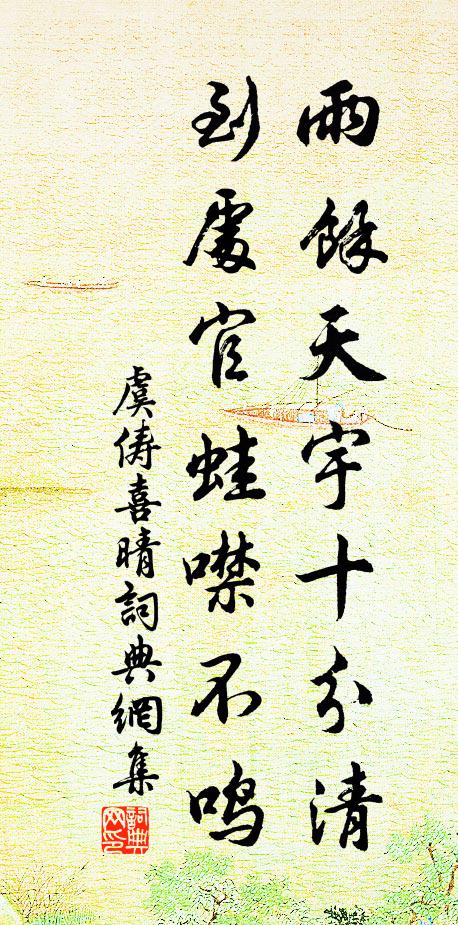 雨餘天宇十分清
到處官蛙噤不鸣
虞儔喜晴詞典網集
詞典网印